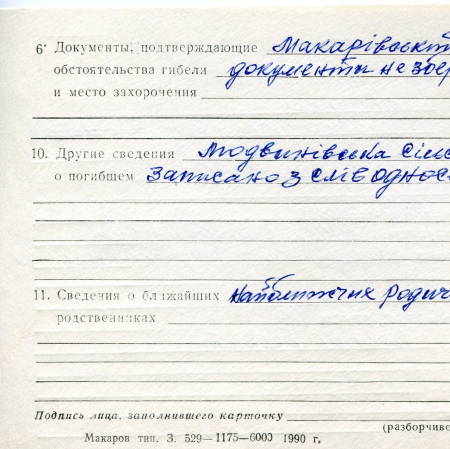 6• Документы, подтверждающие Макарівськ
обстоятельства гибели документи не збер
и место захорочения
10. Другие сведения Людвинівська сільс
о погибшем Записано з слів односе
11. Сведения о ближайших найближчих родич
родственниках
Подпись лица, заполнившего карточку
(разборчиво
Макаров тип. З. 529—1175—6000 1990 г.